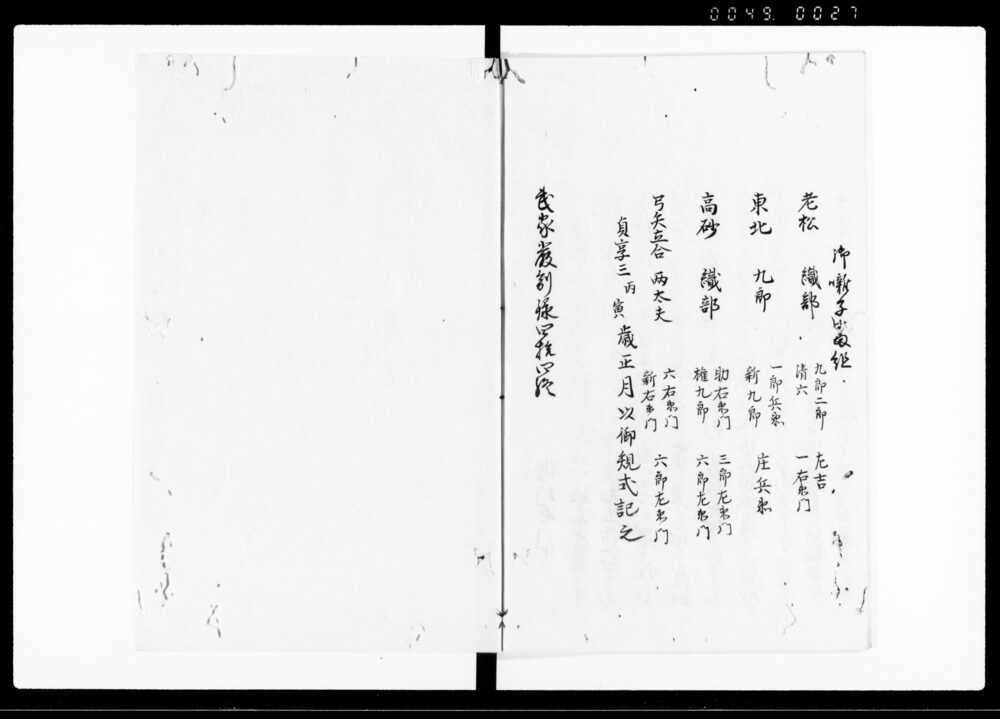 0049. 0027
御囃子番組
老松 織部 九郎二郎 左吉
清六 一右衛門
東北 九郎 一郎兵衛 庄兵衛
新九郎
高砂 織部 助右衛門 三郎左衛門
権九郎 六郎左衛門
弓矢立合 両太夫 六右衛門 六郎左衛門
新右衛門
貞享三丙寅歳正月以御規式記之
武家厳制録四拾四終